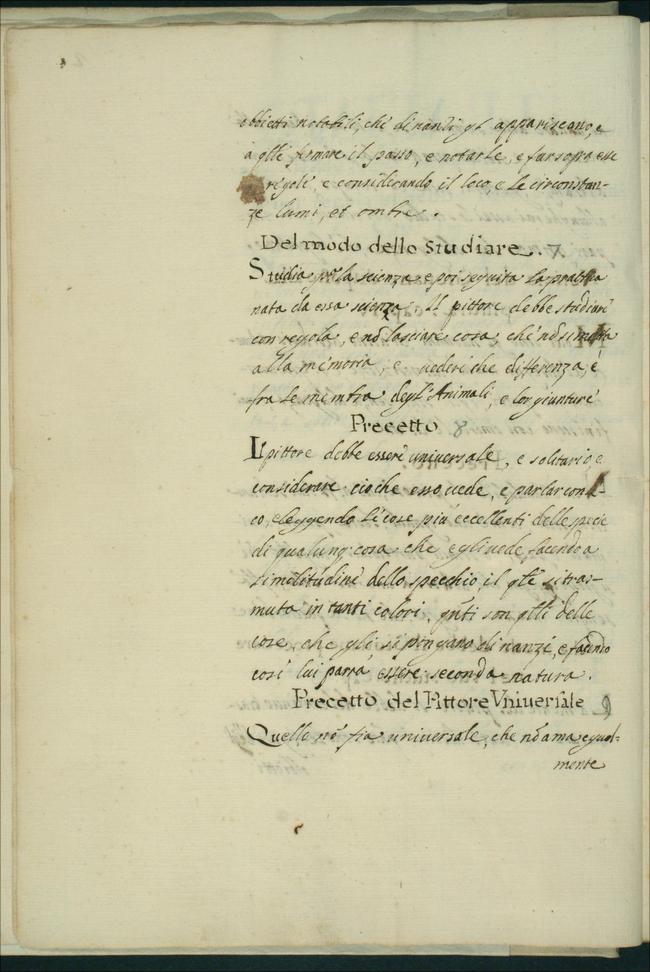 obbietti notabili, che dinanzi gl' appariscano, e
a q̃lli fermare il passo, e notarle, e far sopra esse
regole, e considerando il loco, e le circonstan-
ze lumi, et ombre.
Del modo dello studiare. 7
Studia p̃a la scienza e poi seguita la prattica
nata da essa scienza. Il pittore debbe studiare
con regola, e nõ lasciare cosa, che nõ si metta
alla memoria, e vedere che differenza, è
fra le membra degl' Animali, e lor giunture
Precetto 8
Il pittore debbe essere universale, e solitario, e
considerare ciò che esso vede, e parlar con se-
co, eleggendo le cose più eccellenti delle specie
di qualunq; cosa che egli vede, facendo a
similitudine dello specchio, il q̃le si tras-
muta in tanti colori, q̃nti son q̃lli delle
cose, che gli si pongano dinanzi, e facendo
così lui parrà essere seconda natura.
Precetto del Pittore Vniuersale 9
Quello nõ fia universale, che nõ ama egual-
mente